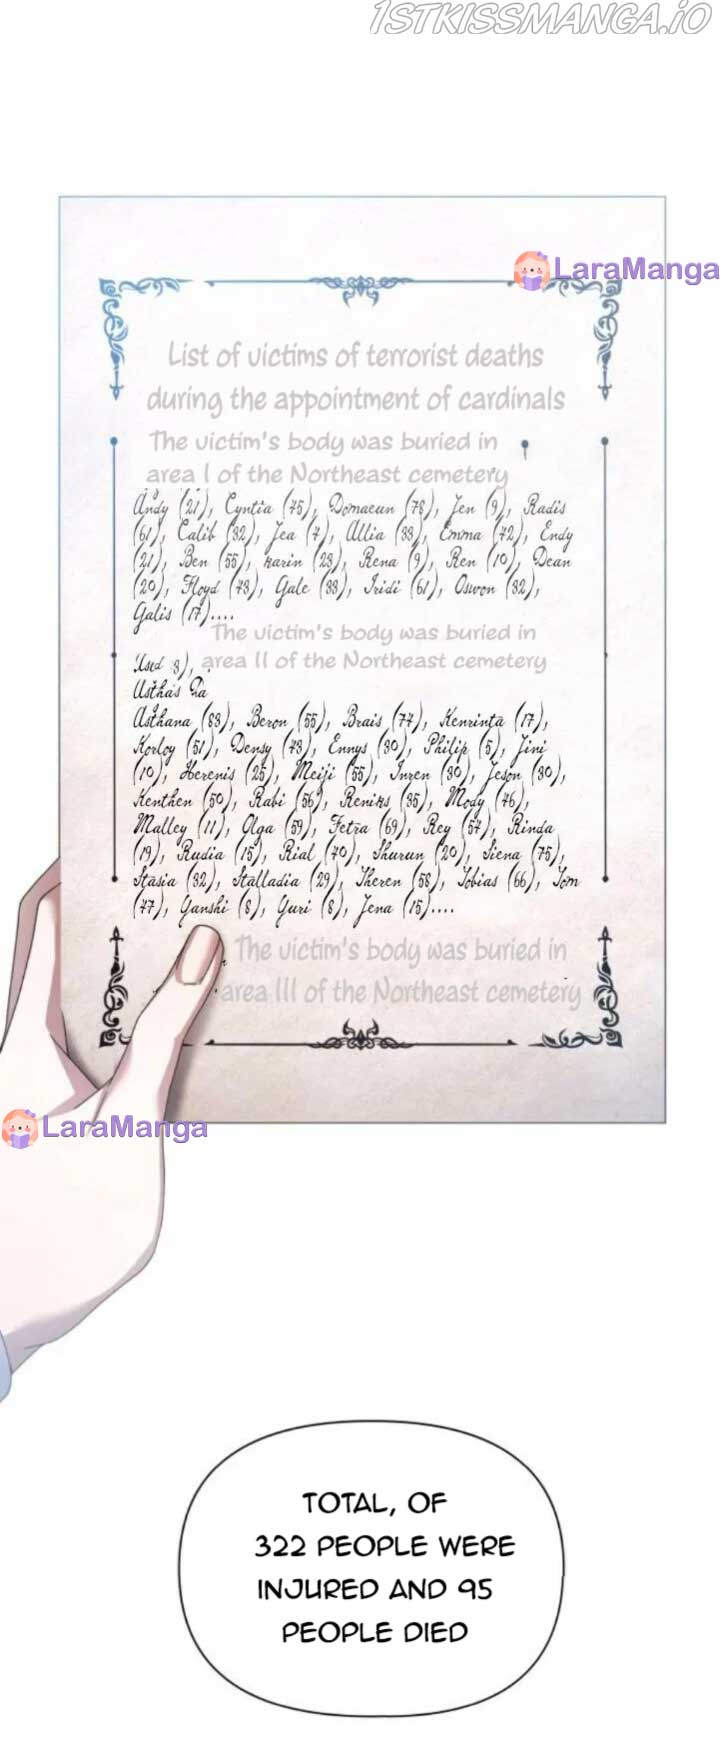 1STKISSMANGA.IO
LaraManga
List of victims of terrorist deaths
during the appointment of cardinals
The victim's body was buried in
area I of the Northeast cemetery
Andy (21), Cyntia (75), Domaeun (78), Jen (9), Radis
(61), Calib (32), Jea (7), Allia (33), Emma (72), Endy
(21), Ben (55), Karin (23), Rena (9), Ren (10), Dean
(20), Floyd (43), Gale (38), Iridi (61), Oswon (32),
Galis (17)....
The victim's body was buried in
area II of the Northeast cemetery
Asthana (83), Beron (55), Brais (77), Kenrinta (17),
Korloy (51), Densy (43), Ennys (30), Philip (5), Jini
(10), Herenis (25), Meiji (55), Inren (30), Jeson (30),
Kenthen (50), Rabi (56), Reniks (35), Mody (46),
Malley (11), Olga (59), Fetra (69), Rey (57), Rinda
(19), Rudia (15), Rial (70), Shurun (20), Siena (75),
Stasia (32), Stalladia (29), Theren (58), Tobias (66), Tom
(47), Yanshi (8), Yuri (8), Jena (15)....
The victim's body was buried in
area III of the Northeast cemetery
LaraManga
TOTAL, OF
322 PEOPLE WERE
INJURED AND 95
PEOPLE DIED